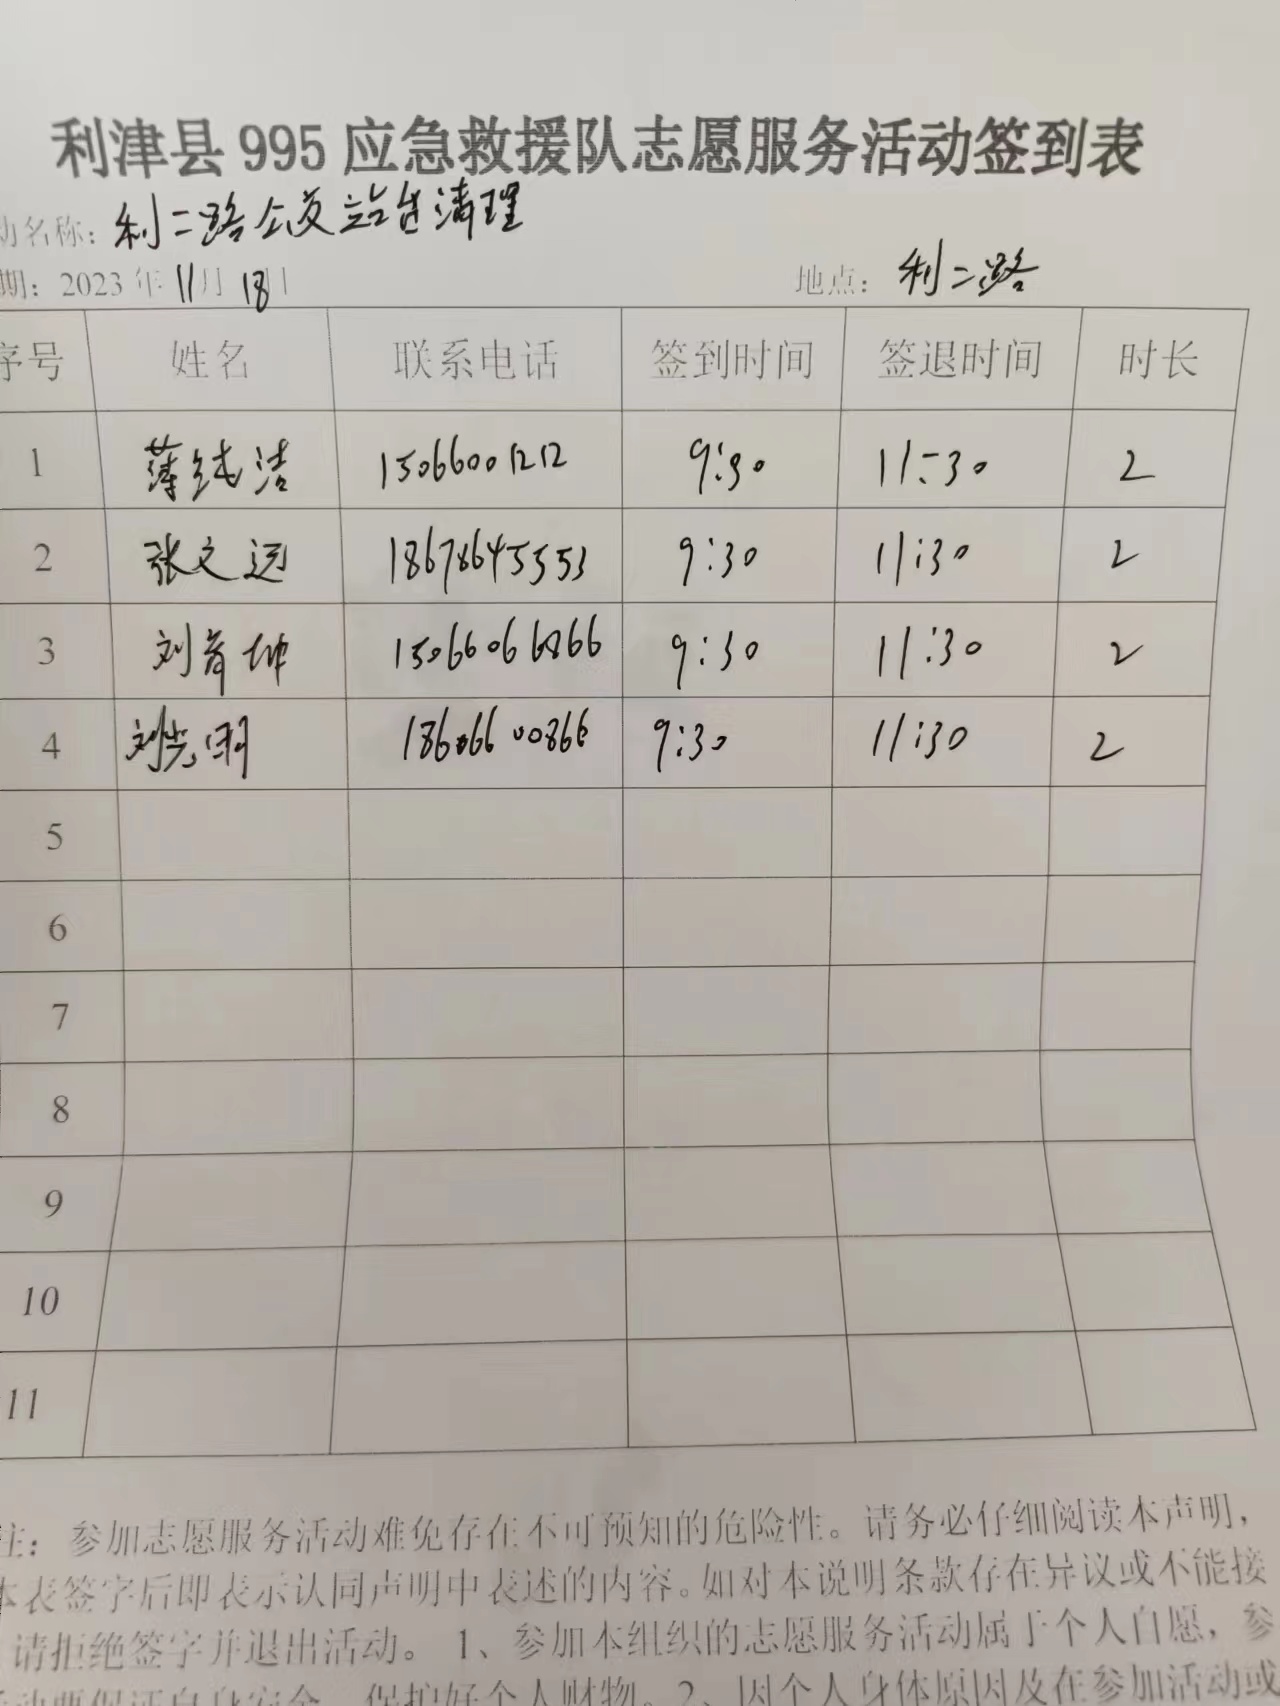 利津县995应急救援队志愿服务活动签到表
动名称：利二路公交站台清理
期：2023年11月18日 地点：利二路
序号 姓名 联系电话 签到时间 签退时间 时长
1 薄纯洁 15066001212 9:30 11:30 2
2 张文远 18678645553 9:30 11:30 2
3 刘 坤 15066066866 9:30 11:30 2
4 刘光明 18606600866 9:30 11:30 2
5
6
7
8
9
10
11
注：参加志愿服务活动难免存在不可预知的危险性。请务必仔细阅读本声明，
本表签字后即表示认同声明中表述的内容。如对本说明条款存在异议或不能接
请拒绝签字并退出活动。1、参加本组织的志愿服务活动属于个人自愿，参
活动要保证自身安全，保护好个人财物。2、因个人身体原因及在参加活动或